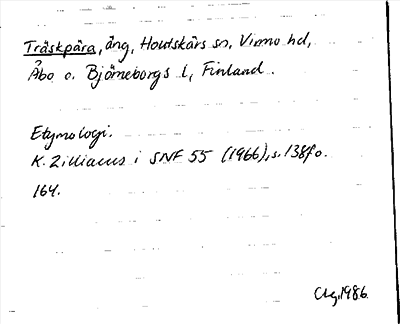 Träskpära, äng, Houtskärs sn, Virmo hd,
Åbo o. Björneborgs l, Finland.
Etymologi.
K. Zilliacus i SNF 55 (1966), s. 138f o.
164.
1986.